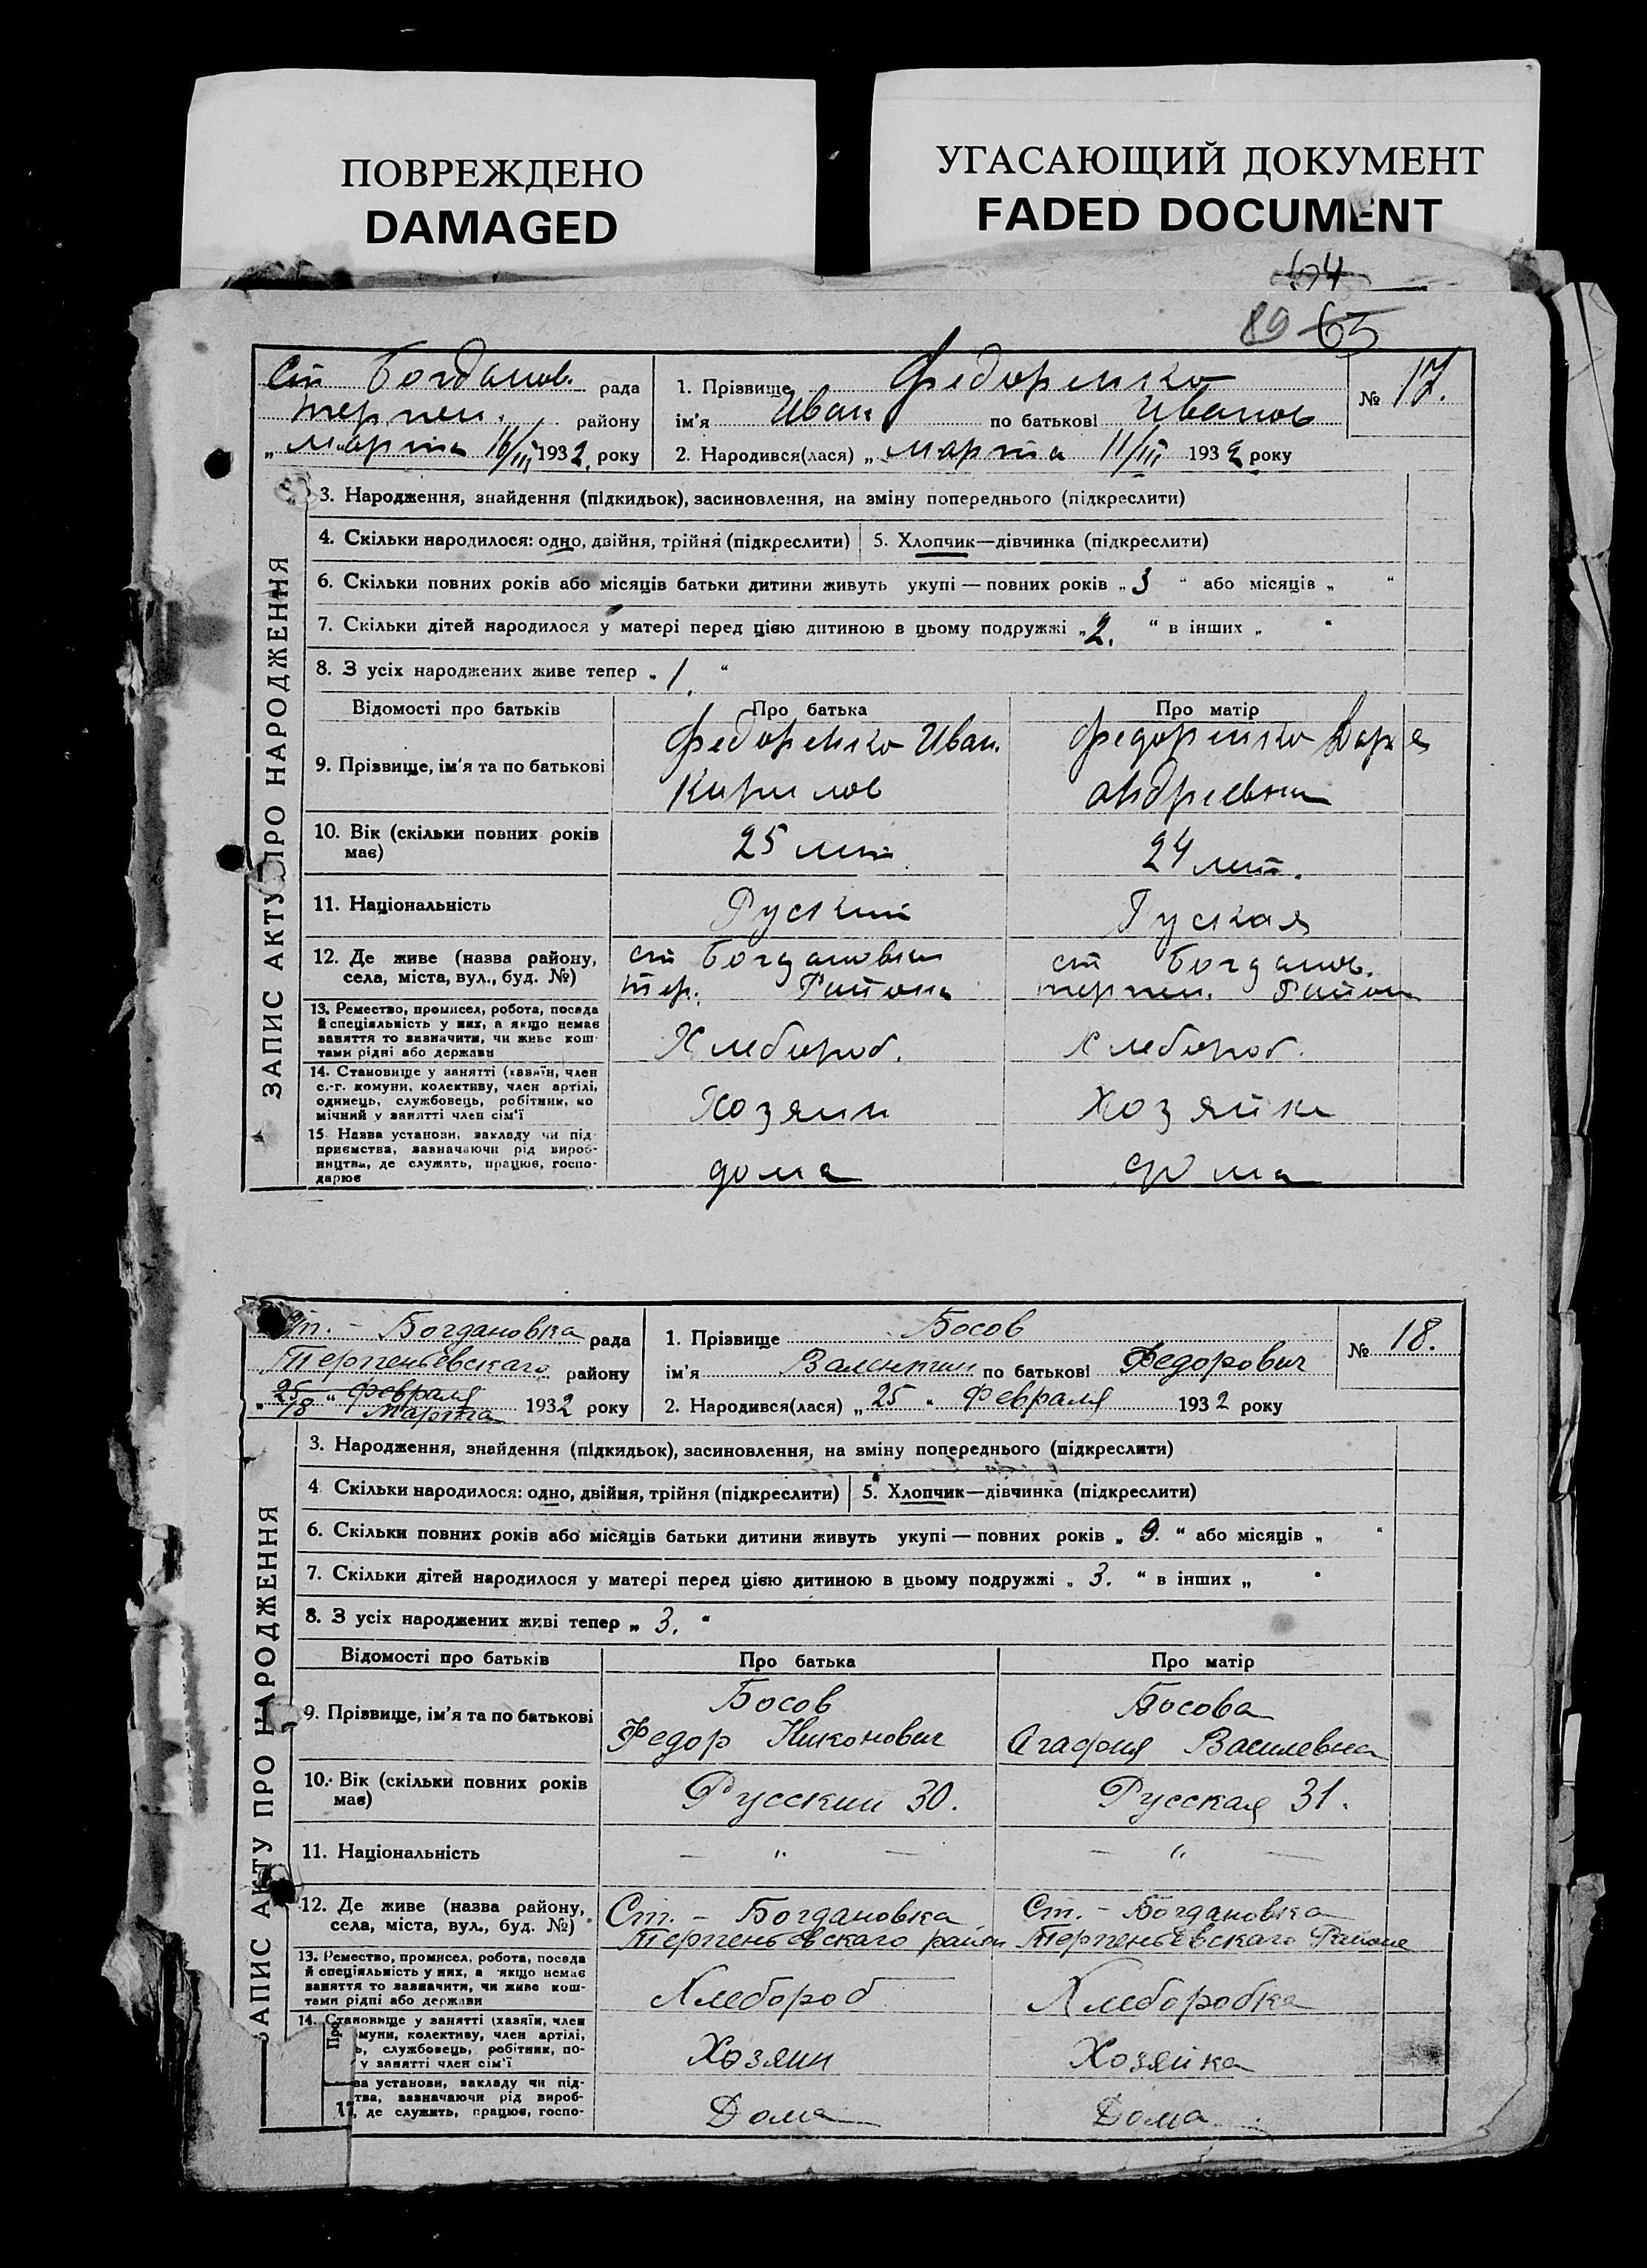 ПОВРЕЖДЕНО
DAMAGED
УГАСАЮЩИЙ ДОКУМЕНТ
FADED DOCUMENT
64
89 65
ЗАПИС АКТУ ПРО НАРОДЖЕННЯ
Ст Богданов. рада
терпен. району
„ марта 16/III 1932. року
1. Прізвище Федоренко
ім'я Иван по батькові Иванов
2. Народився(лася) „ марта 11/III 1932 року
№ 17.
3. Народження, знайдення (підкидьок), засиновлення, на зміну попереднього (підкреслити)
4. Скільки народилося: одно, двійня, трійня (підкреслити) 5. Хлопчик—дівчинка (підкреслити)
6. Скільки повних років або місяців батьки дитини живуть укупі — повних років „ 3 “ або місяців „ “
7. Скільки дітей народилося у матері перед цією дитиною в цьому подружжі „ 2. “ в інших „ “
8. З усіх народжених живе тепер „ 1. “
Відомості про батьків Про батька Про матір
9. Прізвище, ім'я та по батькові
Федоренко Иван.
Кирилов
Федоренко Даря
андреевна
10. Вік (скільки повних років
має)
25 лет
24 лет.
11. Національність Руский Руская
12. Де живе (назва району,
села, міста, вул., буд. №)
ст Богдановки
тер. Района
ст Богданов.
терпен. Район
13. Ремество, промисел, робота, посада
й спеціяльність у них, а якщо немає
заняття то визначити, чи живе кош-
тами рідні або держави
Хлебороб.
Хлебороб.
14. Становище у занятті (хазяїн, член
с.-г. комуни, колективу, член артілі,
одинець, службовець, робітник, по
мічний у занятті член сім'ї
Хозяин
Хозяйка
15. Назва установи, закладу чи під-
приємства, зазначаючи рід вироб-
ництва, де служить, працює, госпо-
дарює
дома
дома
ЗАПИС АКТУ ПРО НАРОДЖЕННЯ
Ст. - Богдановка рада
Терпеньевскаго району
„ 25 “ Февраля
18 Марта 1932 року
1. Прізвище Босов
ім'я Валентин по батькові Федорович
2. Народився(лася) „ 25 “ Февраля 1932 року
№ 18.
3. Народження, знайдення (підкидьок), засиновлення, на зміну попереднього (підкреслити)
4 Скільки народилося: одно, двійня, трійня (підкреслити) 5. Хлопчик—дівчинка (підкреслити)
6. Скільки повних років або місяців батьки дитини живуть укупі — повних років „ 9. “ або місяців „ “
7. Скільки дітей народилося у матері перед цією дитиною в цьому подружжі „ 3. “ в інших „ “
8. З усіх народжених живі тепер „ 3. “
Відомості про батьків Про батька Про матір
9. Прізвище, ім'я та по батькові
Босов
Федор Никонович
Босова
Агафия Василевна
10. Вік (скільки повних років
має)
Русский 30.
Русская 31.
11. Національність — " — — " —
12. Де живе (назва району,
села, міста, вул., буд. №)
Ст. - Богдановка
Терпеньевскаго район
Ст. - Богдановка
Терпеньевскаго Района
13. Ремество, промисел, робота, посада
й спеціяльність у них, а якщо немає
заняття то зазначити, чи живе кош-
тами рідні або держави
Хлебороб
Хлеборобка
14. Становище у занятті (хазяїн, член
муни, колективу, член артілі,
ь, службовець, робітник, по-
у занятті член сім'ї
Про
Хозяин
Хозяйка
ва установи, закладу чи під-
тва, зазначаючи рід вироб-
, де служить, працює, госпо-
17
Дома
Дома